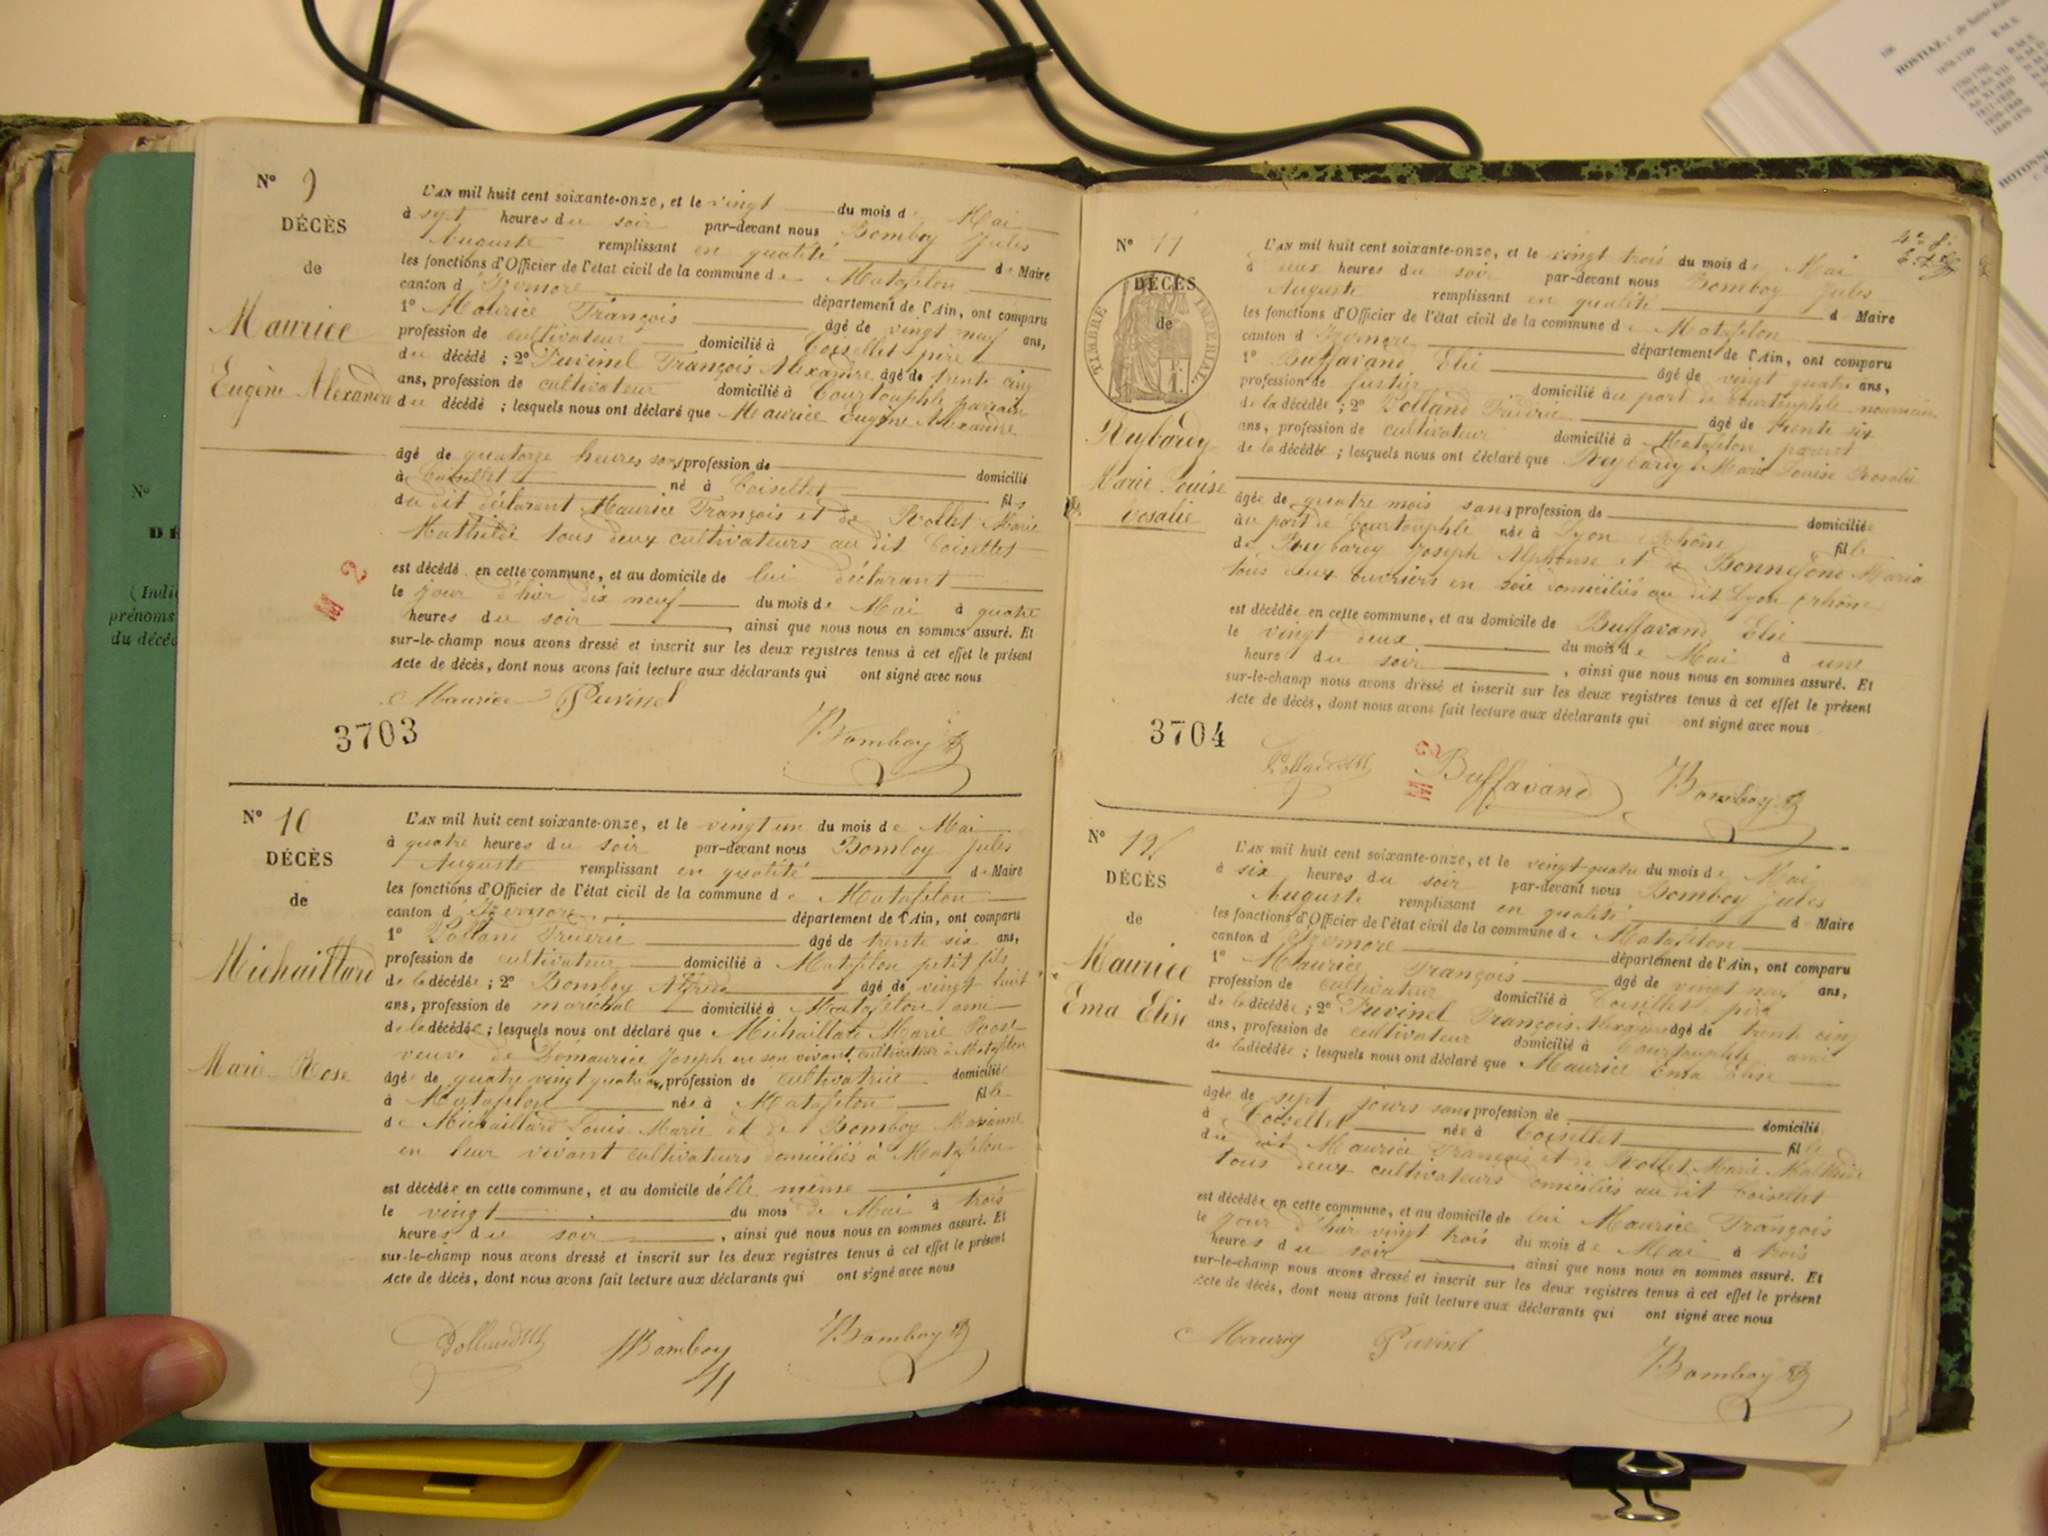 Nº 9
DÉCÈS
de
Maurice
Eugène Alexandre
L'AN mil huit cent soixante-onze, et le vingt du mois de Mai
à sept heures du soir par-devant nous Bomboy Jules
Auguste remplissant en qualité de Maire
les fonctions d'Officier de l'état civil de la commune de Matafelon
canton d'Izernore département de l'Ain, ont comparu
1º Maurice François âgé de vingt neuf ans,
profession de cultivateur domicilié à Coisellet père
du décédé ; 2º Puvinel François Alexandre âgé de trente cinq
ans, profession de cultivateur domicilié à Courtouphle parrain
du décédé ; lesquels nous ont déclaré que Maurice Eugène Alexandre
âgé de quatorze heures sans profession de domicilié
à Coisellet né à Coisellet fils
du dit déclarant Maurice François et de Rollet Marie
Mathilde tous deux cultivateurs au dit Coisellet
est décédé en cette commune, et au domicile de lui déclarant
le jour d'hier dix neuf du mois de Mai à quatre
heures du soir , ainsi que nous nous en sommes assuré. Et
sur-le-champ nous avons dressé et inscrit sur les deux registres tenus à cet effet le présent
Acte de décès, dont nous avons fait lecture aux déclarants qui ont signé avec nous
Maurice Puvinel
Bomboy
3703
M 2
Nº 10
DÉCÈS
de
Michaillard
Marie Rose
L'AN mil huit cent soixante-onze, et le vingt un du mois de Mai
à quatre heures du soir par-devant nous Bomboy Jules
Auguste remplissant en qualité de Maire
les fonctions d'Officier de l'état civil de la commune de Matafelon
canton d'Izernore département de l'Ain, ont comparu
1º Polland Fréderic âgé de trente six ans,
profession de cultivateur domicilié à Matafelon petit fils
de la décédée ; 2º Bomboy Alfred âgé de vingt huit
ans, profession de maréchal domicilié à Matafelon ami
de la décédée ; lesquels nous ont déclaré que Michaillard Marie Rose
veuve de Démaurice Joseph en son vivant cultivateur à Matafelon
âgée de quatre vingt quatre ans, profession de cultivatrice domiciliée
à Matafelon née à Matafelon fille
de Michaillard Louis Marie et de Bomboy Marianne
en leur vivant cultivateurs domiciliés à Matafelon
est décédée en cette commune, et au domicile d'elle même
le vingt du mois de Mai à trois
heures du soir , ainsi que nous nous en sommes assuré. Et
sur-le-champ nous avons dressé et inscrit sur les deux registres tenus à cet effet le présent
Acte de décès, dont nous avons fait lecture aux déclarants qui ont signé avec nous
Bomboy
Bomboy
Nº 11
DÉCÈS
de
TIMBRE IMPÉRIAL
Reybardy
Marie Louise
rosalie
L'AN mil huit cent soixante-onze, et le vingt trois du mois de Mai
à deux heures du soir par-devant nous Bomboy Jules
Auguste remplissant en qualité de Maire
les fonctions d'Officier de l'état civil de la commune de Matafelon
canton d'Izernore département de l'Ain, ont comparu
1º Buffavand Elie âgé de vingt quatre ans,
profession de domicilié au port de Courtouphle nourricier
de la décédée ; 2º Polland Fréderic âgé de trente six
ans, profession de cultivateur domicilié à Matafelon
de la décédée ; lesquels nous ont déclaré que Reybardy Marie Louise Rosalie
âgée de quatre mois sans profession de domiciliée
au port de Courtouphle née à Lyon Rhône fille
de Reybardy Joseph Alphonse et de Bonnefond Maria
tous deux ouvriers en soie domiciliés au dit Lyon (rhône
est décédée en cette commune, et au domicile de Buffavand Elie
le vingt deux du mois de Mai à une
heure du soir , ainsi que nous nous en sommes assuré. Et
sur-le-champ nous avons dressé et inscrit sur les deux registres tenus à cet effet le présent
Acte de décès, dont nous avons fait lecture aux déclarants qui ont signé avec nous
3704
M 2
Buffavand
Bomboy
Nº 12
DÉCÈS
de
Maurice
Ema Elise
L'AN mil huit cent soixante-onze, et le vingt-quatre du mois de Mai
à six heures du soir par-devant nous Bomboy Jules
Auguste remplissant en qualité de Maire
les fonctions d'Officier de l'état civil de la commune de Matafelon
canton d'Izernore département de l'Ain, ont comparu
1º Maurice François âgé de vingt neuf ans,
profession de cultivateur domicilié à Coisellet père
de la décédée ; 2º Puvinel François Alexandre âgé de trente cinq
ans, profession de cultivateur domicilié à Courtouphle ami
de la décédée ; lesquels nous ont déclaré que Maurice Ema Elise
âgée de sept jours sans profession de domiciliée
à Coisellet née à Coisellet fille
du dit Maurice François et de Rollet Marie Mathilde
tous deux cultivateurs domiciliés au dit Coisellet
est décédée en cette commune, et au domicile de lui Maurice François
le jour d'hier vingt trois du mois de Mai à trois
heures du soir , ainsi que nous nous en sommes assuré. Et
sur-le-champ nous avons dressé et inscrit sur les deux registres tenus à cet effet le présent
Acte de décès, dont nous avons fait lecture aux déclarants qui ont signé avec nous
Puvinel
Bomboy